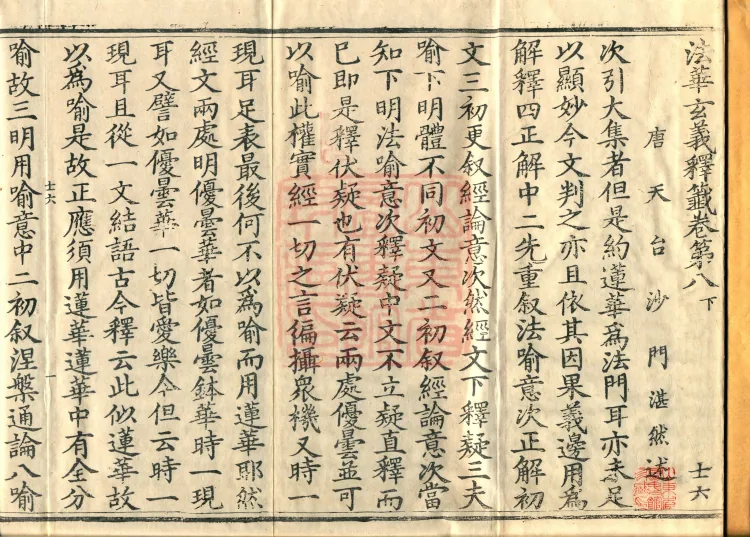 法華玄義釋籤卷第八下
唐天台沙門湛然述 士六
次引大集者但是約蓮華為法門耳亦未足
以顯妙今文判之亦且依其因果義邊用為
解釋四正解中二先重叙法喻意次正解初
文三初更叙經論意次然經文下釋疑三夫
喻下明體不同初文又二初叙經論意次當
知下明法喻意次釋疑中文不立疑直釋而
已即是釋伏疑也有伏疑云兩處優曇並可
以喻此權實經一切之言徧攝衆機又時一
現耳足表最後何不以為喻而用蓮華耶然
經文兩處明優曇華者如優曇鉢華時一現
耳又譬如優曇華一切皆愛樂今但云時一
現耳且從一文結語古今釋云此似蓮華故
以為喻是故正應須用蓮華蓮華中有全分
士六 一
喻故三明用喻意中二初叙涅槃通論八喻